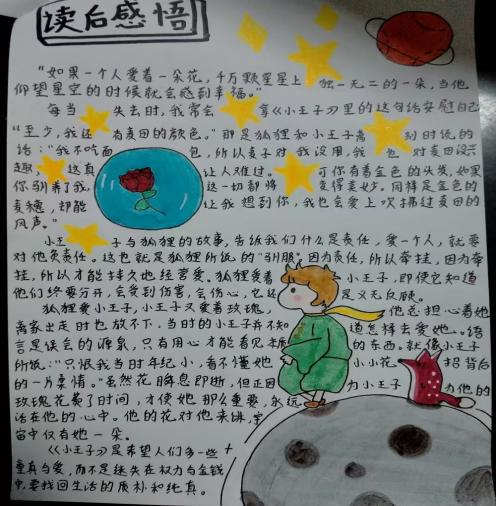 读后感悟
“如果一个人爱着一朵花,千万颗星星上独一无二的一朵,当他
仰望星空的时候就会感到幸福。”
每当失去时,我常会拿《小王子》里的这句话安慰自己
“至少,我还有麦田的颜色。”那是狐狸和小王子离别时说的
话:“我不吃面包,所以麦子对我没用,我也对麦田没兴
趣,这真让人难过。可你有着金色的头发,如果
你驯养了我,这一切都将变得美妙。同样是金色的
麦穗,却能让我想到你,我也会爱上吹拂过麦田的
风声。”
小王子与狐狸的故事,告诉我们什么是责任,爱一个人,就要
对他负责任。这也就是狐狸所说的“驯服”,因为责任,所以牵挂,因为牵
挂,所以才能持久地经营爱。狐狸爱着小王子,即使它知道
他们终要分开,会受到伤害,会伤心,它还是义无反顾。
狐狸爱小王子,小王子又爱着玫瑰,他总担心着她
离家出走时也放不下,当时的小王子并不知道怎样去爱她。语
言是误会的源泉,只有用心才能看见本质的东西。就像小王子
所说:“只恨我当时年纪小,看不懂她小小花招背后
的一片柔情。”虽然花瞬息即逝,但正因为小王子为他的
玫瑰花费了时间,才使她那么重要,永远
活在他的心中。他的花对他来讲,宇
宙中仅有她一朵。
《小王子》是希望人们多一些
童真与爱,而不是迷失在权力与金钱
中,要找回生活的质朴和纯真。